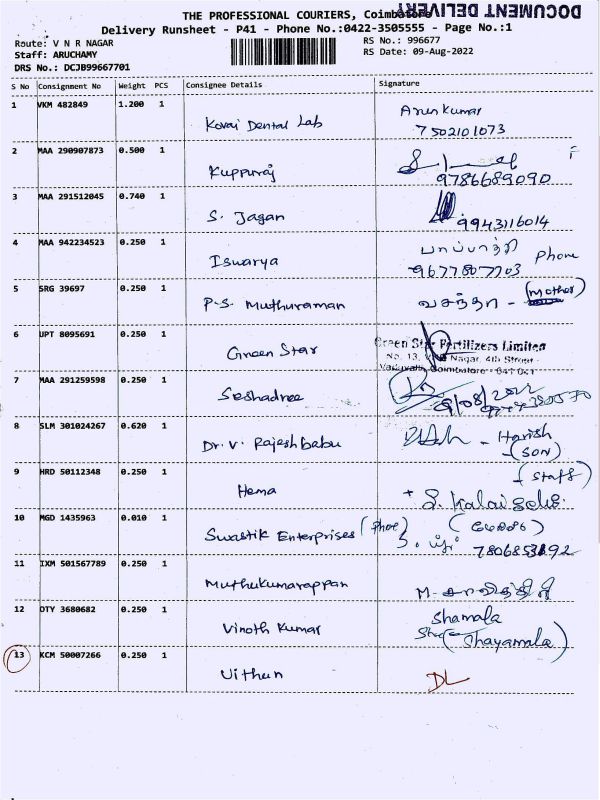 DOCUMENT DELIVERY
THE PROFESSIONAL COURIERS, Coimbatore
Delivery Runsheet - P41 - Phone No.:0422-3505555 - Page No.:1
Route: V N R NAGAR
Staff: ARUCHAMY
DRS No.: DCJB99667701
RS No.: 996677
RS Date: 09-Aug-2022
S No Consignment No Weight PCS Consignee Details Signature
1 VKM 482849 1.200 1 Kovai Dental Lab Arun Kumar
7502101073
2 MAA 290907873 0.500 1 Kuppuraj
9786689090
3 MAA 291512045 0.740 1 S. Jagan 9943116014
4 MAA 942234523 0.250 1 Iswarya பாப்பாத்தி Phone
9677807703
5 SRG 39697 0.250 1 P.S. Muthuraman வசந்தா - (mother)
6 UPT 8095691 0.250 1 Green Star Green Star Fertilizers Limited
No. 13, Nagar, 4th Street
Vadavalli, Coimbatore - 641 041
7 MAA 291259598 0.250 1 Seshadree 9/08/2022
8 SLM 301024267 0.620 1 Dr. V. Rajeshbabu - Harish
(SON)
9 HRD 50112348 0.250 1 Hema (Staff)
10 MGD 1435963 0.010 1 Swastik Enterprises (Phone)
11 IXM 501567789 0.250 1 Muthukumarappan
12 OTY 3680682 0.250 1 Vinoth Kumar Shamala
(Shayamala)
13 KCM 50007266 0.250 1 Vithun DL